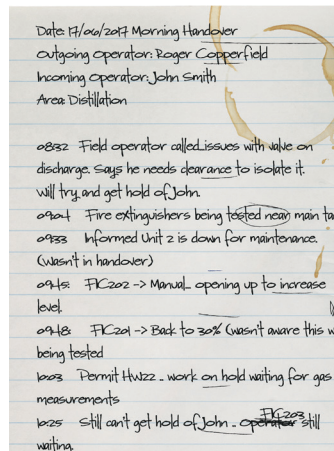 Date: 17/06/2017 Morning Handover
Outgoing Operator: Roger Copperfield
Incoming Operator: John Smith
Area: Distillation
0832 Field operator called issues with valve on
discharge. Says he needs clearance to isolate it.
Will try and get hold of John.
0904 Fire extinguishers being tested near main ta
0933 Informed Unit 2 is down for maintenance.
(wasn't in handover)
0945: FIC202 -> Manual - opening up to increase
level.
0948: FIC201 -> Back to 30% (wasn't aware this w
being tested
1003 Permit HW22 - work on hold waiting for gas
measurements
FIC203
1025 Still can't get hold of John - operator still
waiting.